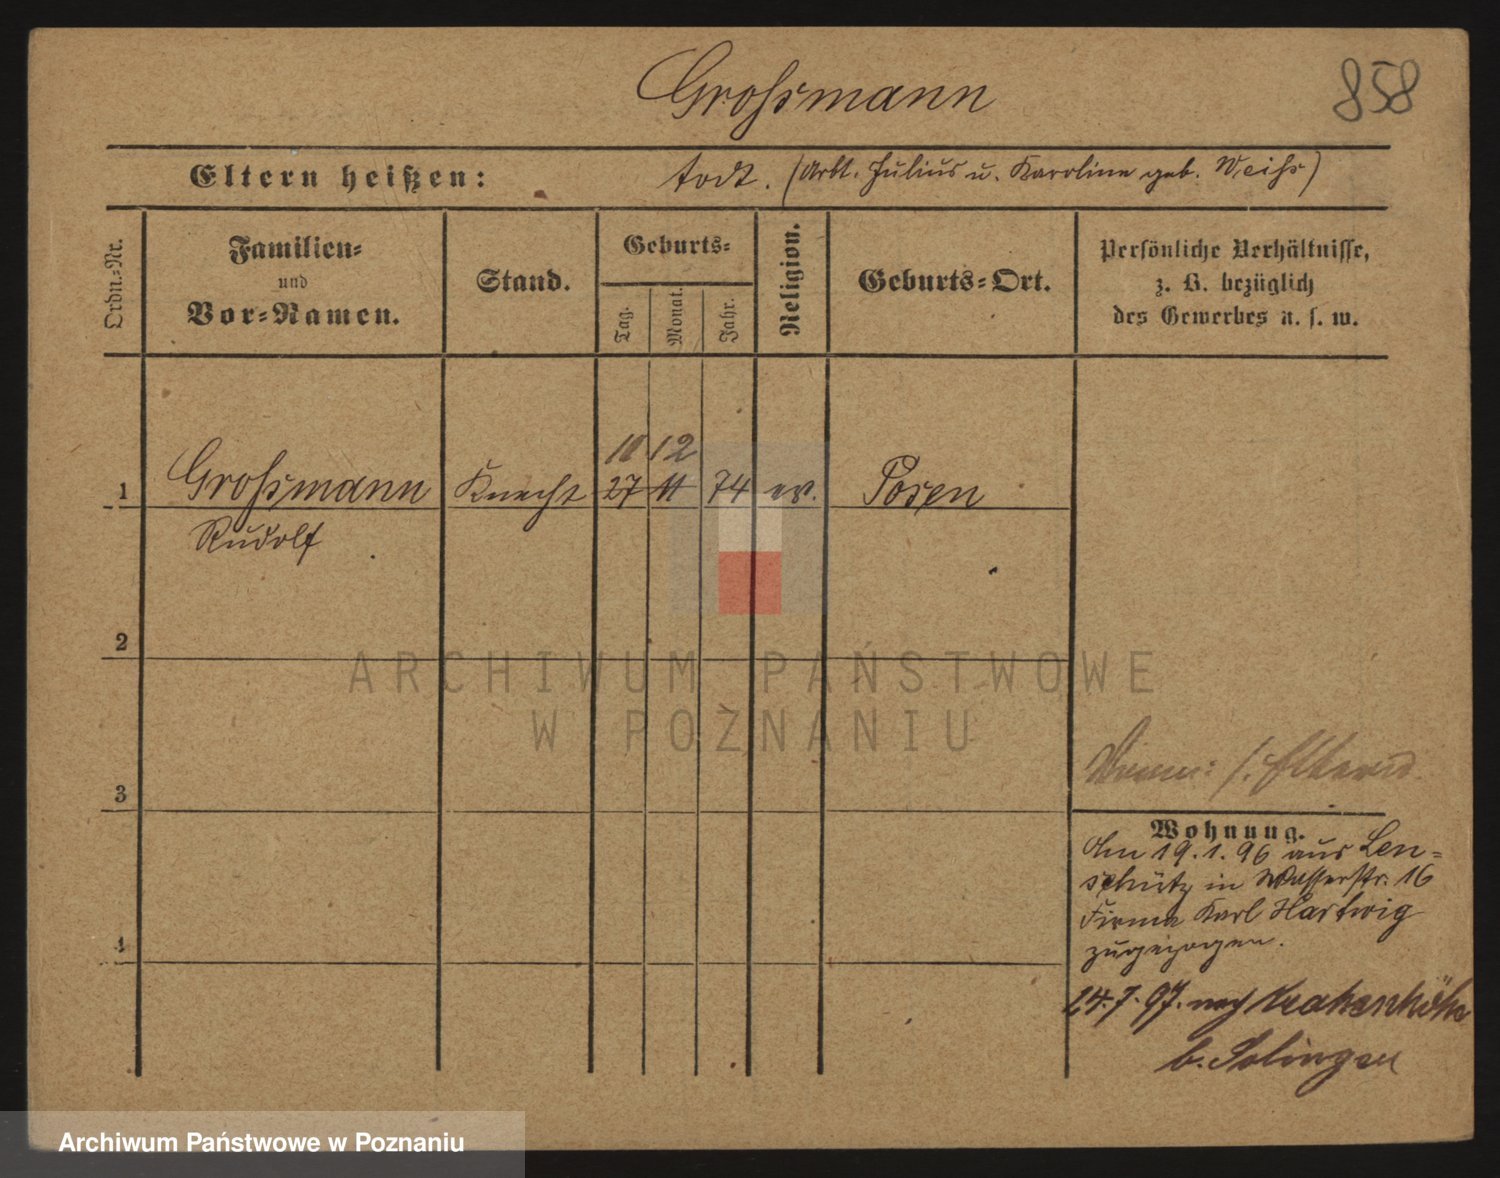 Grossmann
858
Eltern heißen: todt. (Arbt. Julius u. Karoline geb. Weiss)
Ordn.-Nr.
Familien-
und
Vor-Namen.
Stand.
Geburts-
Tag.
Monat.
Jahr.
Religion.
Geburts-Ort.
Persönliche Verhältnisse,
z. B. bezüglich
des Gewerbes u. s. w.
10 12
1 Grossmann Knecht 27 11 74 ev. Posen
Rudolf
2
3
4
Wohnung.
Am 19.1.96 aus Len=
schütz in Wasserstr. 16
Firma Karl Hartwig
zugezogen.
24.7.97. nach Krahenhöhe
b. Solingen
ARCHIWUM PAŃSTWOWE
W POZNANIU
Archiwum Państwowe w Poznaniu